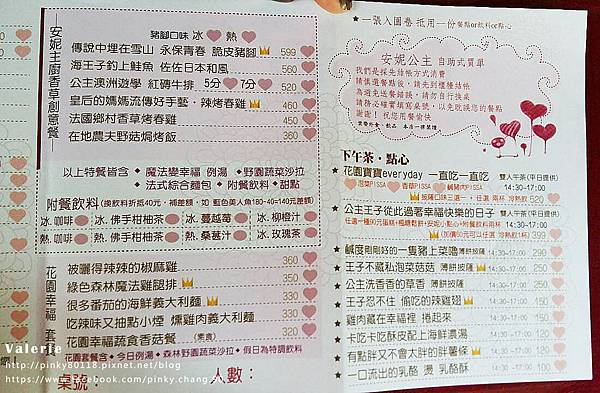 安妮主廚香草創意餐
豬腳口味 冰 熱
傳說中埋在雪山 永保青春 脆皮豬腳 599
海王子釣上鮭魚 佐佐日本和風 560
公主澳洲遊學 紅磚牛排 5分 7分 520
皇后的媽媽流傳好手藝．辣烤春雞 460
法國鄉村香草烤春雞 450
在地農夫野菇焗烤飯 360
以上特餐皆含 • 魔法變幸福 例湯 • 野園蔬菜沙拉
• 法式綜合麵包 • 附餐飲料 • 甜點
附餐飲料(換飲料折抵40元，補差額，如 藍色美人魚180-40=140元差額)
冰.咖啡 冰.佛手柑柚茶 冰.蔓越莓 冰.柳橙汁
熱.咖啡 熱.佛手柑柚茶 熱.桑葚汁 冰.玫瑰茶
花園幸福 套
被曬得辣辣的椒麻雞 360
綠色森林魔法雞腿排 350
很多番茄的海鮮義大利麵 330
吃辣味又抽點小煙 燻雞肉義大利麵 330
花園幸福蔬食香菇餐 (素食) 320
花園套餐含：• 今日例湯 • 森林野園蔬菜沙拉 • 假日為特調飲料
桌號： 人數：
一張入園卷 抵用一份餐點or飲料or點心
安妮公主 自助式買單
我們是採先結帳方式消費
請慎選餐點後，請先到櫃檯結帳
為避免送餐錯誤，請勿自行換桌
請務必確實填寫桌號，以免耽誤您的餐點
謝謝! 祝您用餐愉快
下午茶．點心
花園寶寶everyday 一直吃一直吃 雙人午茶(平日提供)
泡菜PISSA 香草PISSA 鹹豬肉PISSA 14:30-17:00
披薩口味三選一，任選 兩杯 冷熱飲 520
公主王子從此過著幸福快樂的日子 雙人午茶(平日提供)
任選一種90元蛋糕+楓糖鬆餅+安妮小點心+附餐飲料兩杯 14:30-17:00
(加價50元可以任選 冷熱飲1杯) 399
鹹度剛剛好的一隻豬上菜嚕 薄餅披薩 14:30-17:00 290
王子不藏私泡菜菇菇 薄餅披薩 14:30-17:00 250
公主洗香香的草香 薄餅披薩 14:30-17:00
王子忍不住 偷吃的辣雞翅 14:30-17:00
雞肉藏在幸福裡 捲起來 14:30-17:00
卡吃卡吃酥皮配上海鮮濃湯 14:30-17:00
有點胖又不會太胖的胖薯條 14:30-17:00
一口流出的乳酪 燙 乳酪酥 14:30-17:00 100
Valerie
http://pinky80118.pixnet.net/blog
https://www.facebook.com/pinky.chang.39